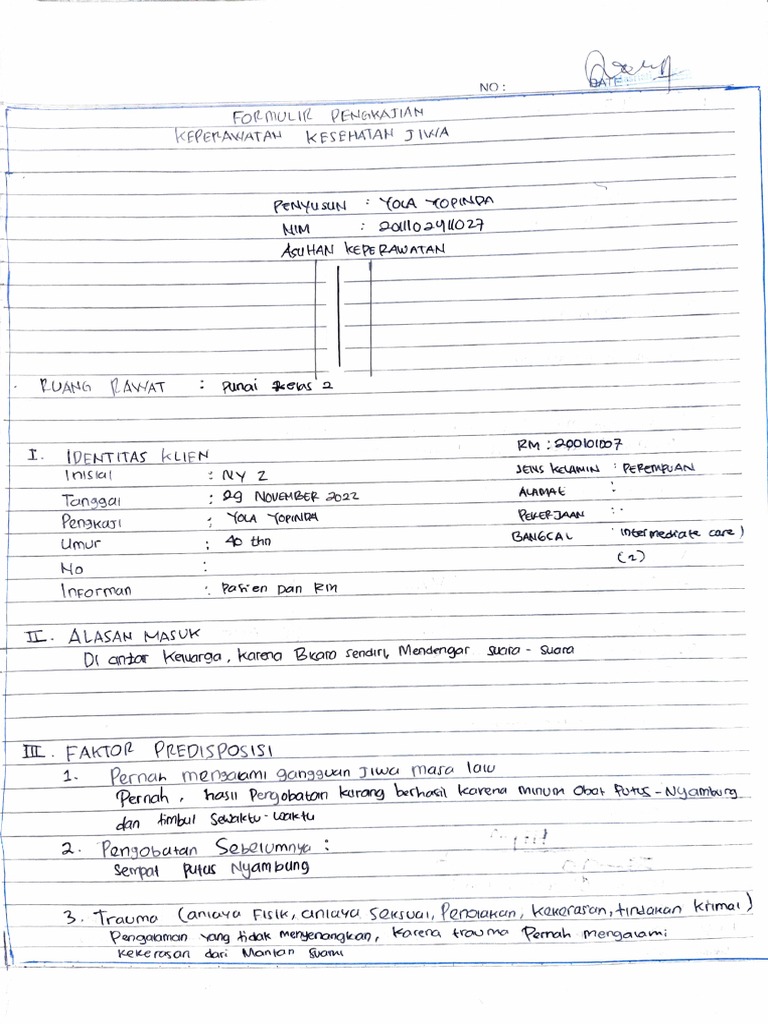 NO:
DATE:
FORMULIR PENGKAJIAN
KEPERAWATAN KESEHATAN JIWA
PENYUSUN : YOLA YOPINDA
NIM : 201102911027
ASUHAN KEPERAWATAN
RUANG RAWAT : Punai Kelas 2
I. IDENTITAS KLIEN
RM : 200101007
Inisial : NY Z
JENIS KELAMIN : PEREMPUAN
Tanggal : 29 NOVEMBER 2022
ALAMAT :
Pengkaji : YOLA YOPINDA
PEKERJAAN : -
Umur : 40 thn
BANGSAL : intermediate care)
(2)
No :
Informan : Pasien Dan RM
II. ALASAN MASUK
Di antar Keluarga, Karena Bicara sendiri, Mendengar suara - suara
III. FAKTOR PREDISPOSISI
1. Pernah mengalami gangguan jiwa masa lalu
Pernah, hasil Pengobatan kurang berhasil karena minum Obat Putus-Nyambung
dan timbul Sewaktu-waktu
2. Pengobatan Sebelumnya :
Sempat Putus Nyambung
3. Trauma (aniaya Fisik, aniaya Seksual, Penolakan, kekerasan, tindakan krimal)
Pengalaman yang tidak menyenangkan, Karena trauma Pernah mengalami
kekerasan dari Mantan Suami